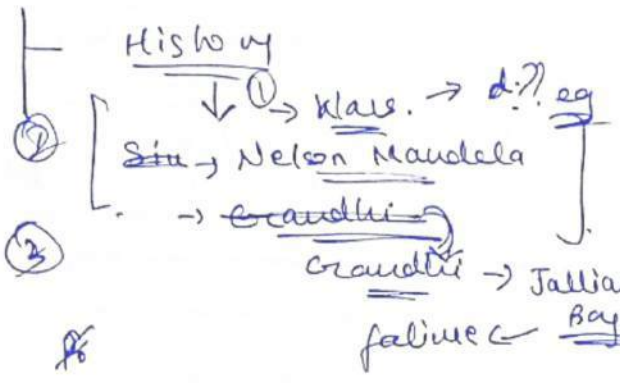 History
① → Wars. → diff eg
② Sin → Nelson Mandela
→ Grandhi
③ Grandhi → Jallia
failure ← Bag